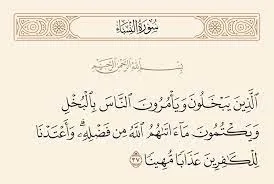 سُورَةُ النِّسَاءِ
بِسْمِ اللَّهِ الرَّحْمَٰنِ الرَّحِيمِ
ٱلَّذِينَ يَبۡخَلُونَ وَيَأۡمُرُونَ ٱلنَّاسَ بِٱلۡبُخۡلِ
وَيَكۡتُمُونَ مَآ ءَاتَىٰهُمُ ٱللَّهُ مِن فَضۡلِهِۦۗ وَأَعۡتَدۡنَا
لِلۡكَٰفِرِينَ عَذَابٗا مُّهِينٗا ٣٧